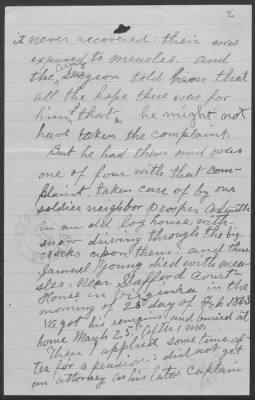 2
it never recovered: their was
exposed to measles. and
the Army Surgeon told him that
all the hope there was for
him & that he might not
have taken the complaint.
But he had them and was
one of four with that com-
plaint taken care of by our
soldier neighbor
in an old log house with
snow driving through the big
cracks upon them. and there
Samuel Young died with mea-
sles. Near Stafford Court-
House in Virginia in the
morning of 28 day of Feb 1863
got his remains and buried at
home March 25, after, 1 mo.
Then I applied some time af-
ter for a pension: did not get
an attorney as his late Captain